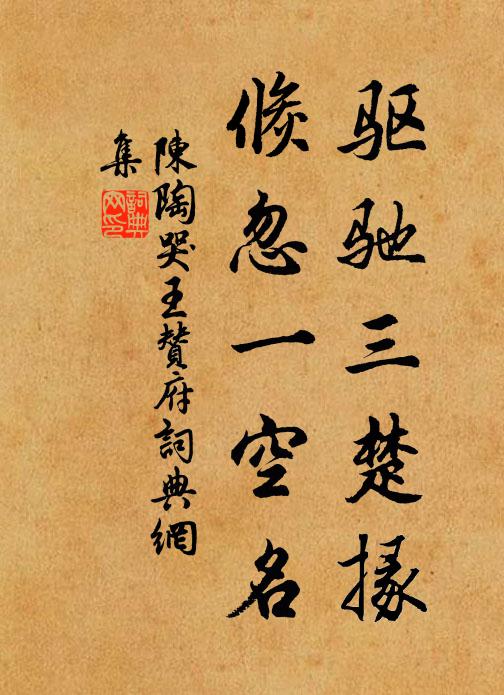 驱驰三楚掾
倏忽一空名
陳陶哭王贊府詞典網
集
詞典网印